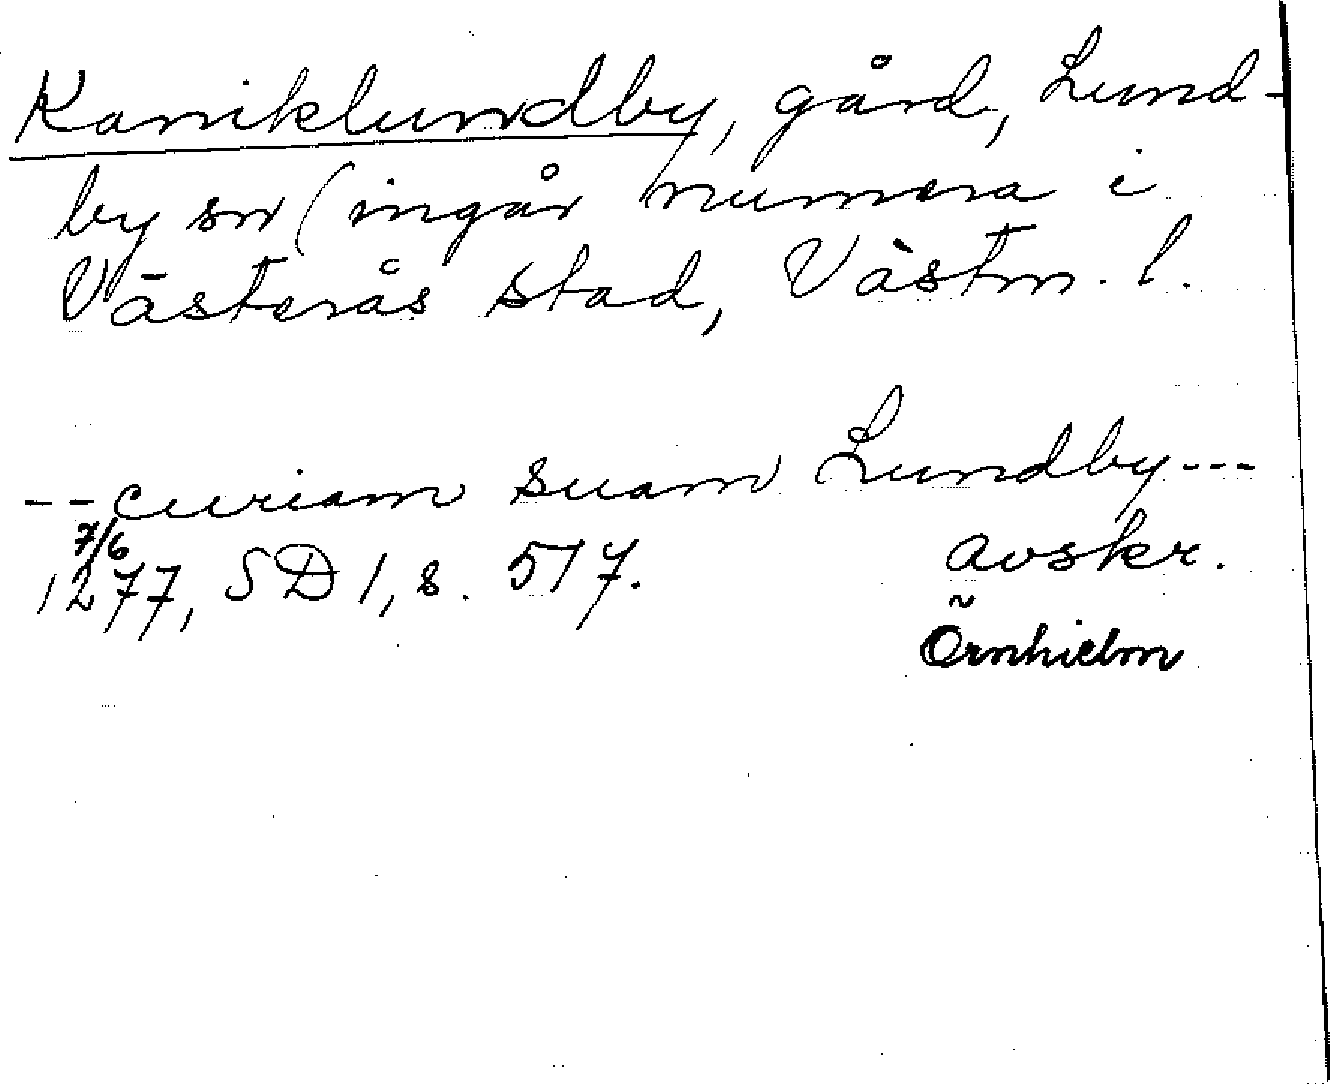 Kaniklundby, gård, Lund-
by sn (ingår numera i
Västerås stad, Västm. l.
--curiam suam Lundby---
7/6
1277, SD 1, s. 517. avskr.
Örnhielm